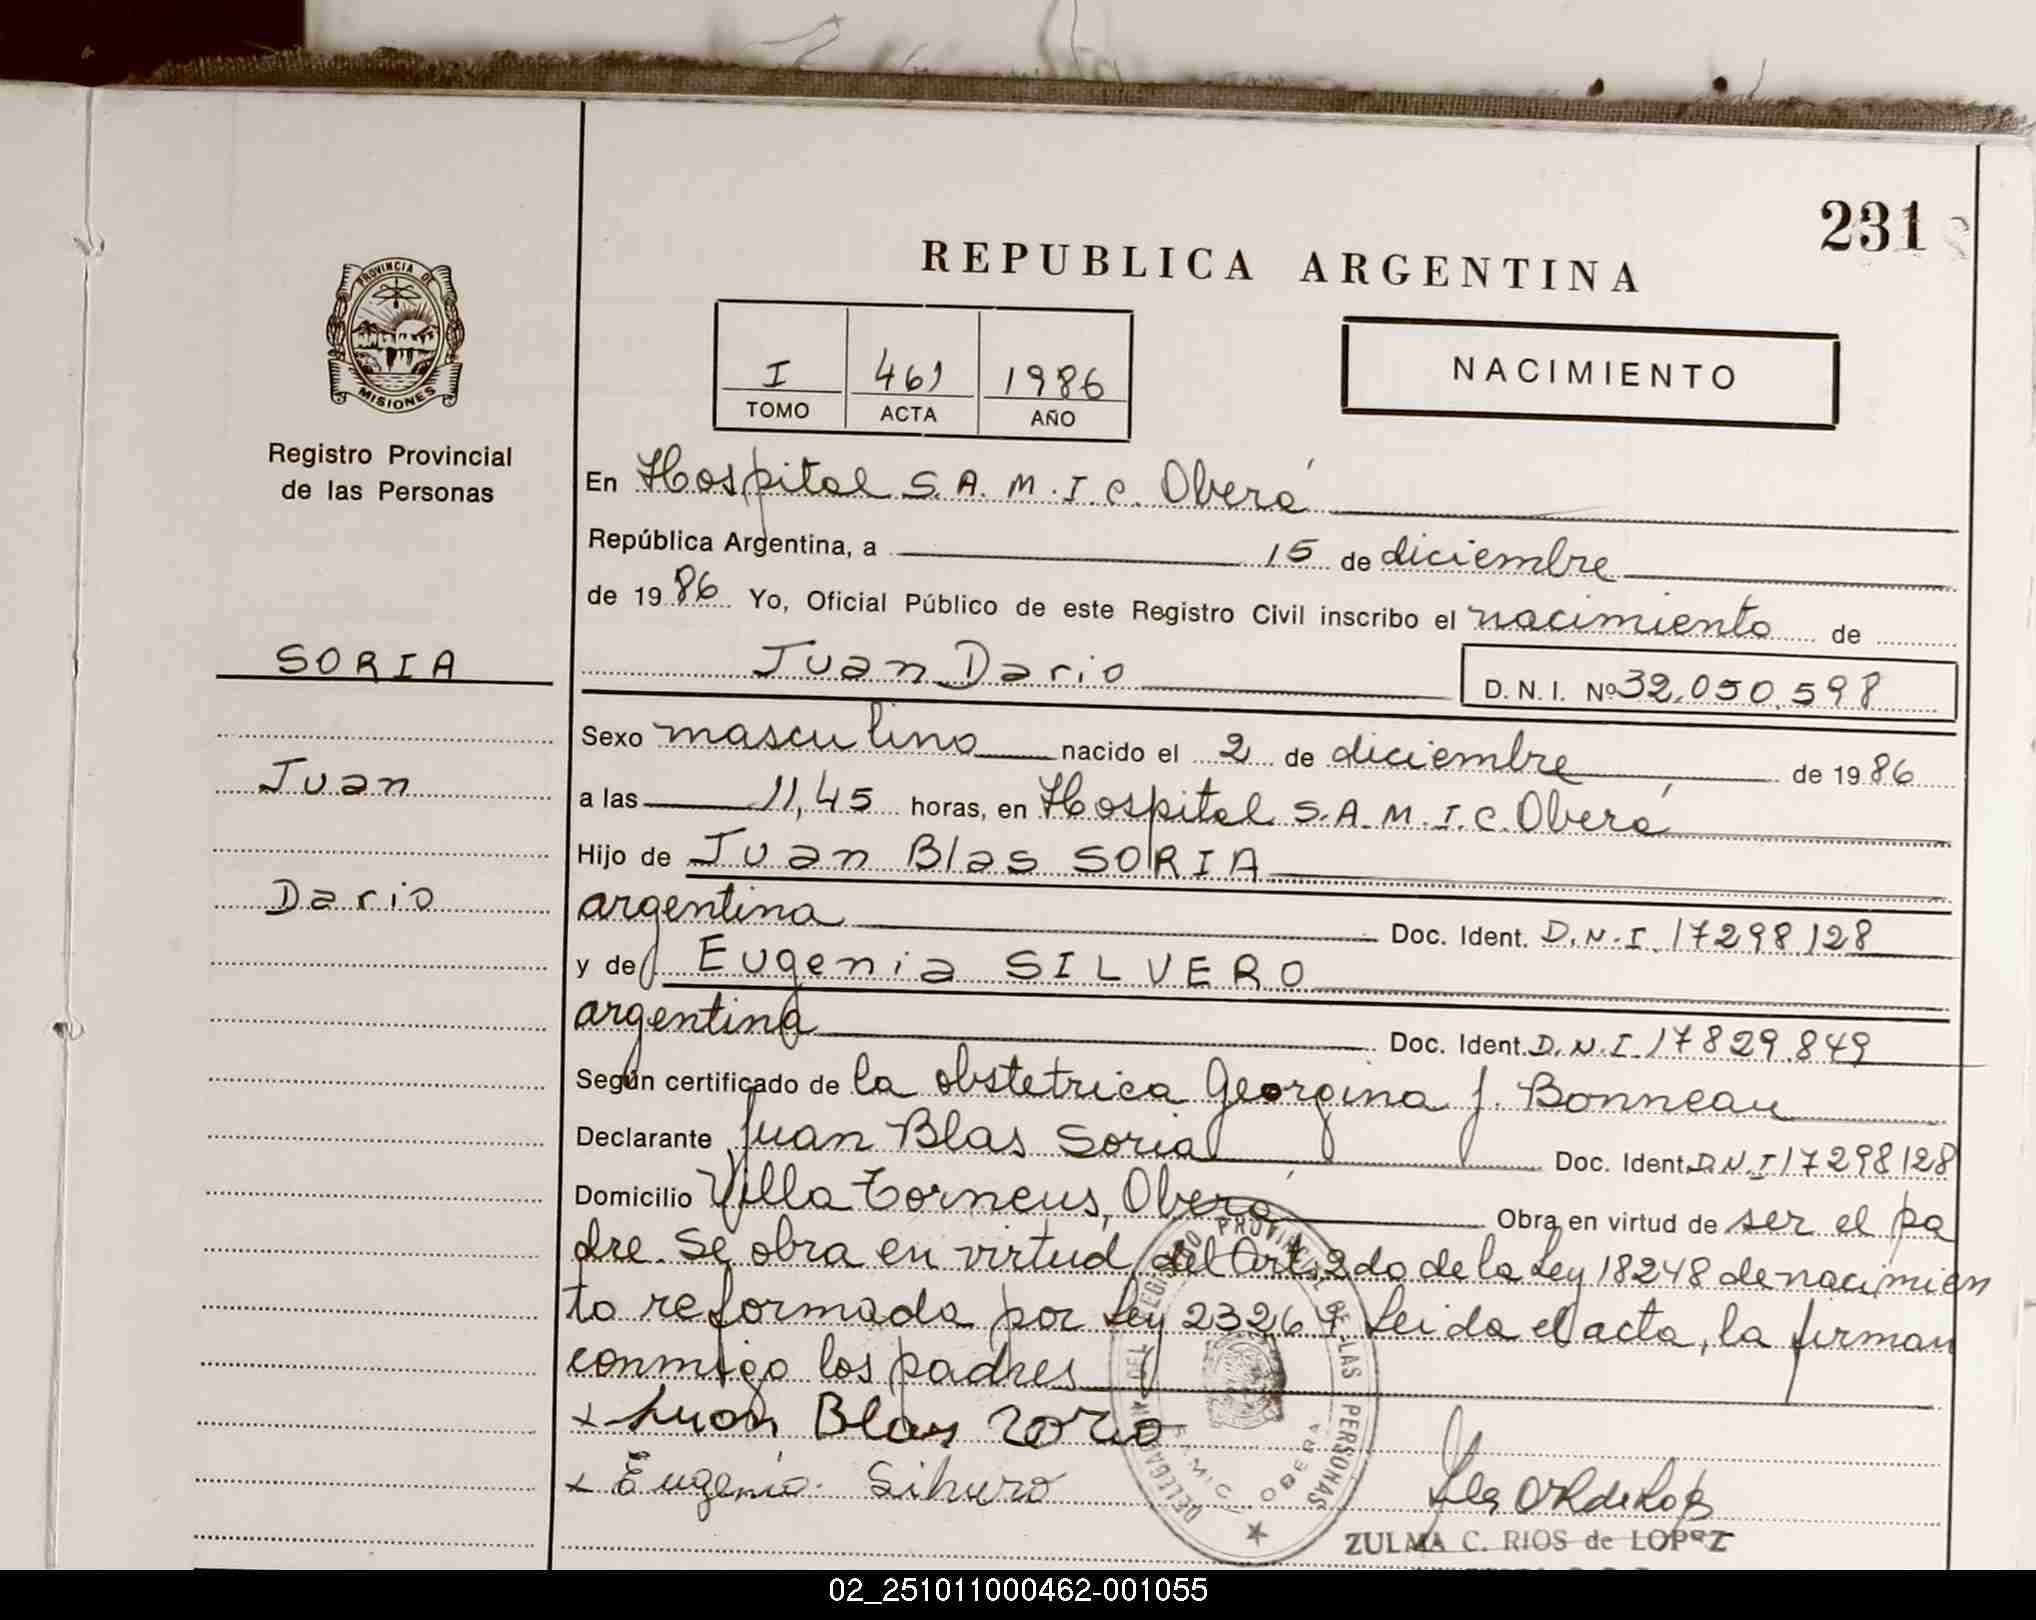 231
REPUBLICA ARGENTINA
PROVINCIA DE
MISIONES
Registro Provincial
de las Personas
I 461 1986
TOMO ACTA AÑO
NACIMIENTO
En Hospital S.A.M.I.C. Oberá
República Argentina, a 15 de diciembre
de 1986 Yo, Oficial Público de este Registro Civil inscribo el nacimiento de
SORIA
Juan Dario D.N.I. Nº 32.050.598
Sexo masculino nacido el 2 de diciembre de 1986
Juan
a las 11,45 horas, en Hospital S.A.M.I.C. Oberá
Hijo de Juan Blas SORIA
Dario
argentina Doc. Ident. D.N.I. 17298128
y de Eugenia SILVERO
argentina Doc. Ident. D.N.I. 17829.849
Según certificado de la obstetrica Georgina J. Bonneau
Declarante Juan Blas Soria Doc. Ident. D.N.I 17298128
Domicilio Villa Torneus, Oberá Obra en virtud de ser el pa
dre. Se obra en virtud del Art. 2do de la Ley 18248 de nacimien
to reformada por Ley 23264 Leida el acta, la firman
conmigo los padres
x Juan Blas Soria
x Eugenia Silvero
DELEGACION DEL REGISTRO PROVINCIAL DE LAS PERSONAS
S.A.M.I.C. OBERA
ZULMA C. RIOS de LOPEZ
02_251011000462-001055